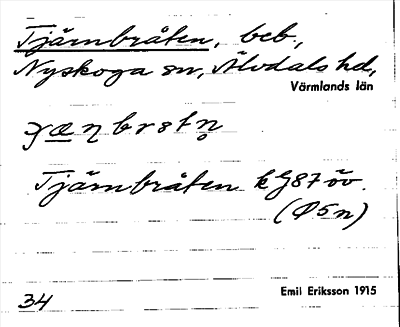 Tjärnbråten, beb,
Nyskoga sn, Älvdals hd,
Värmlands län
Tjärnbråten
(Ø5n)
34
Emil Eriksson 1915